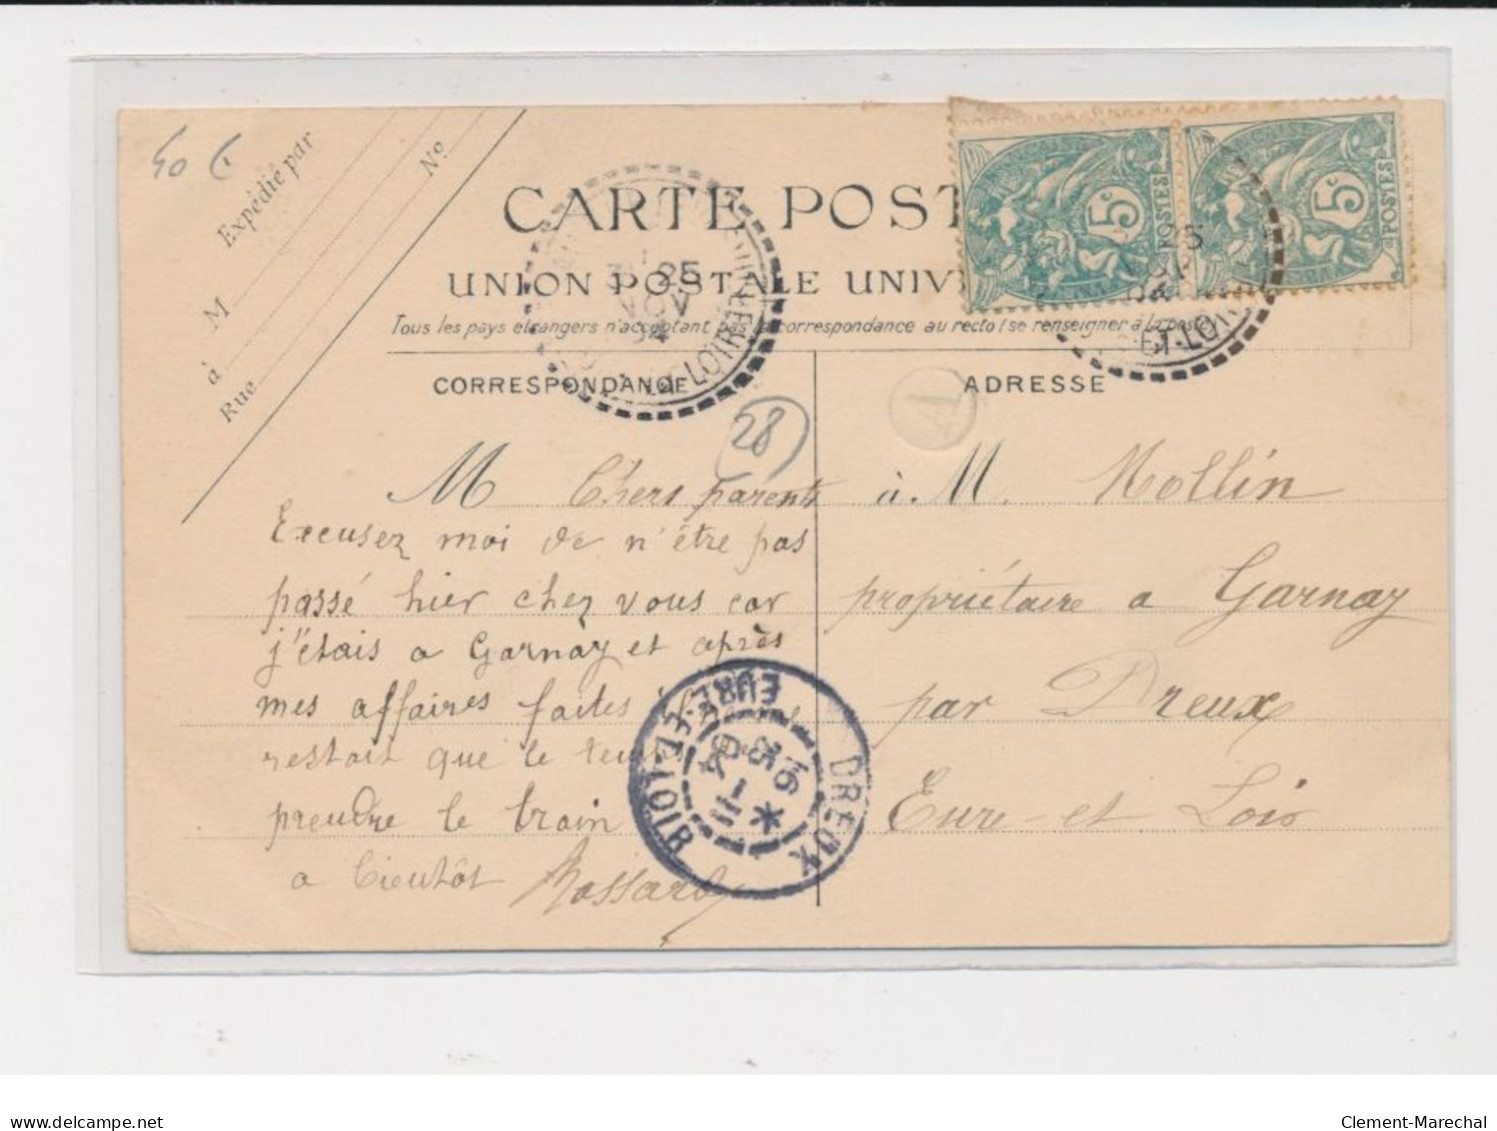 40 €
Expédié par
No
M
à
Rue
CARTE POST
UNION POSTALE UNIV
Tous les pays étrangers n'acceptant pas la correspondance au recto (se renseigner à la poste)
5c
POSTES
5c
POSTES
25
NOV
04
ET-LOIR
CORRESPONDANCE
ADRESSE
A
28
M Chers parents
Excusez moi de n'être pas
passé hier chez vous car
j'étais a Garnay et après
mes affaires faites
restait que le
prendre le train
a bientôt Rossard
à M. Hollin
propriétaire a Garnay
par Dreux
Eure-et Loir
DREUX
EURE-ET-LOIR
16
25-11
04
delcampe.net
Clement-Marechal